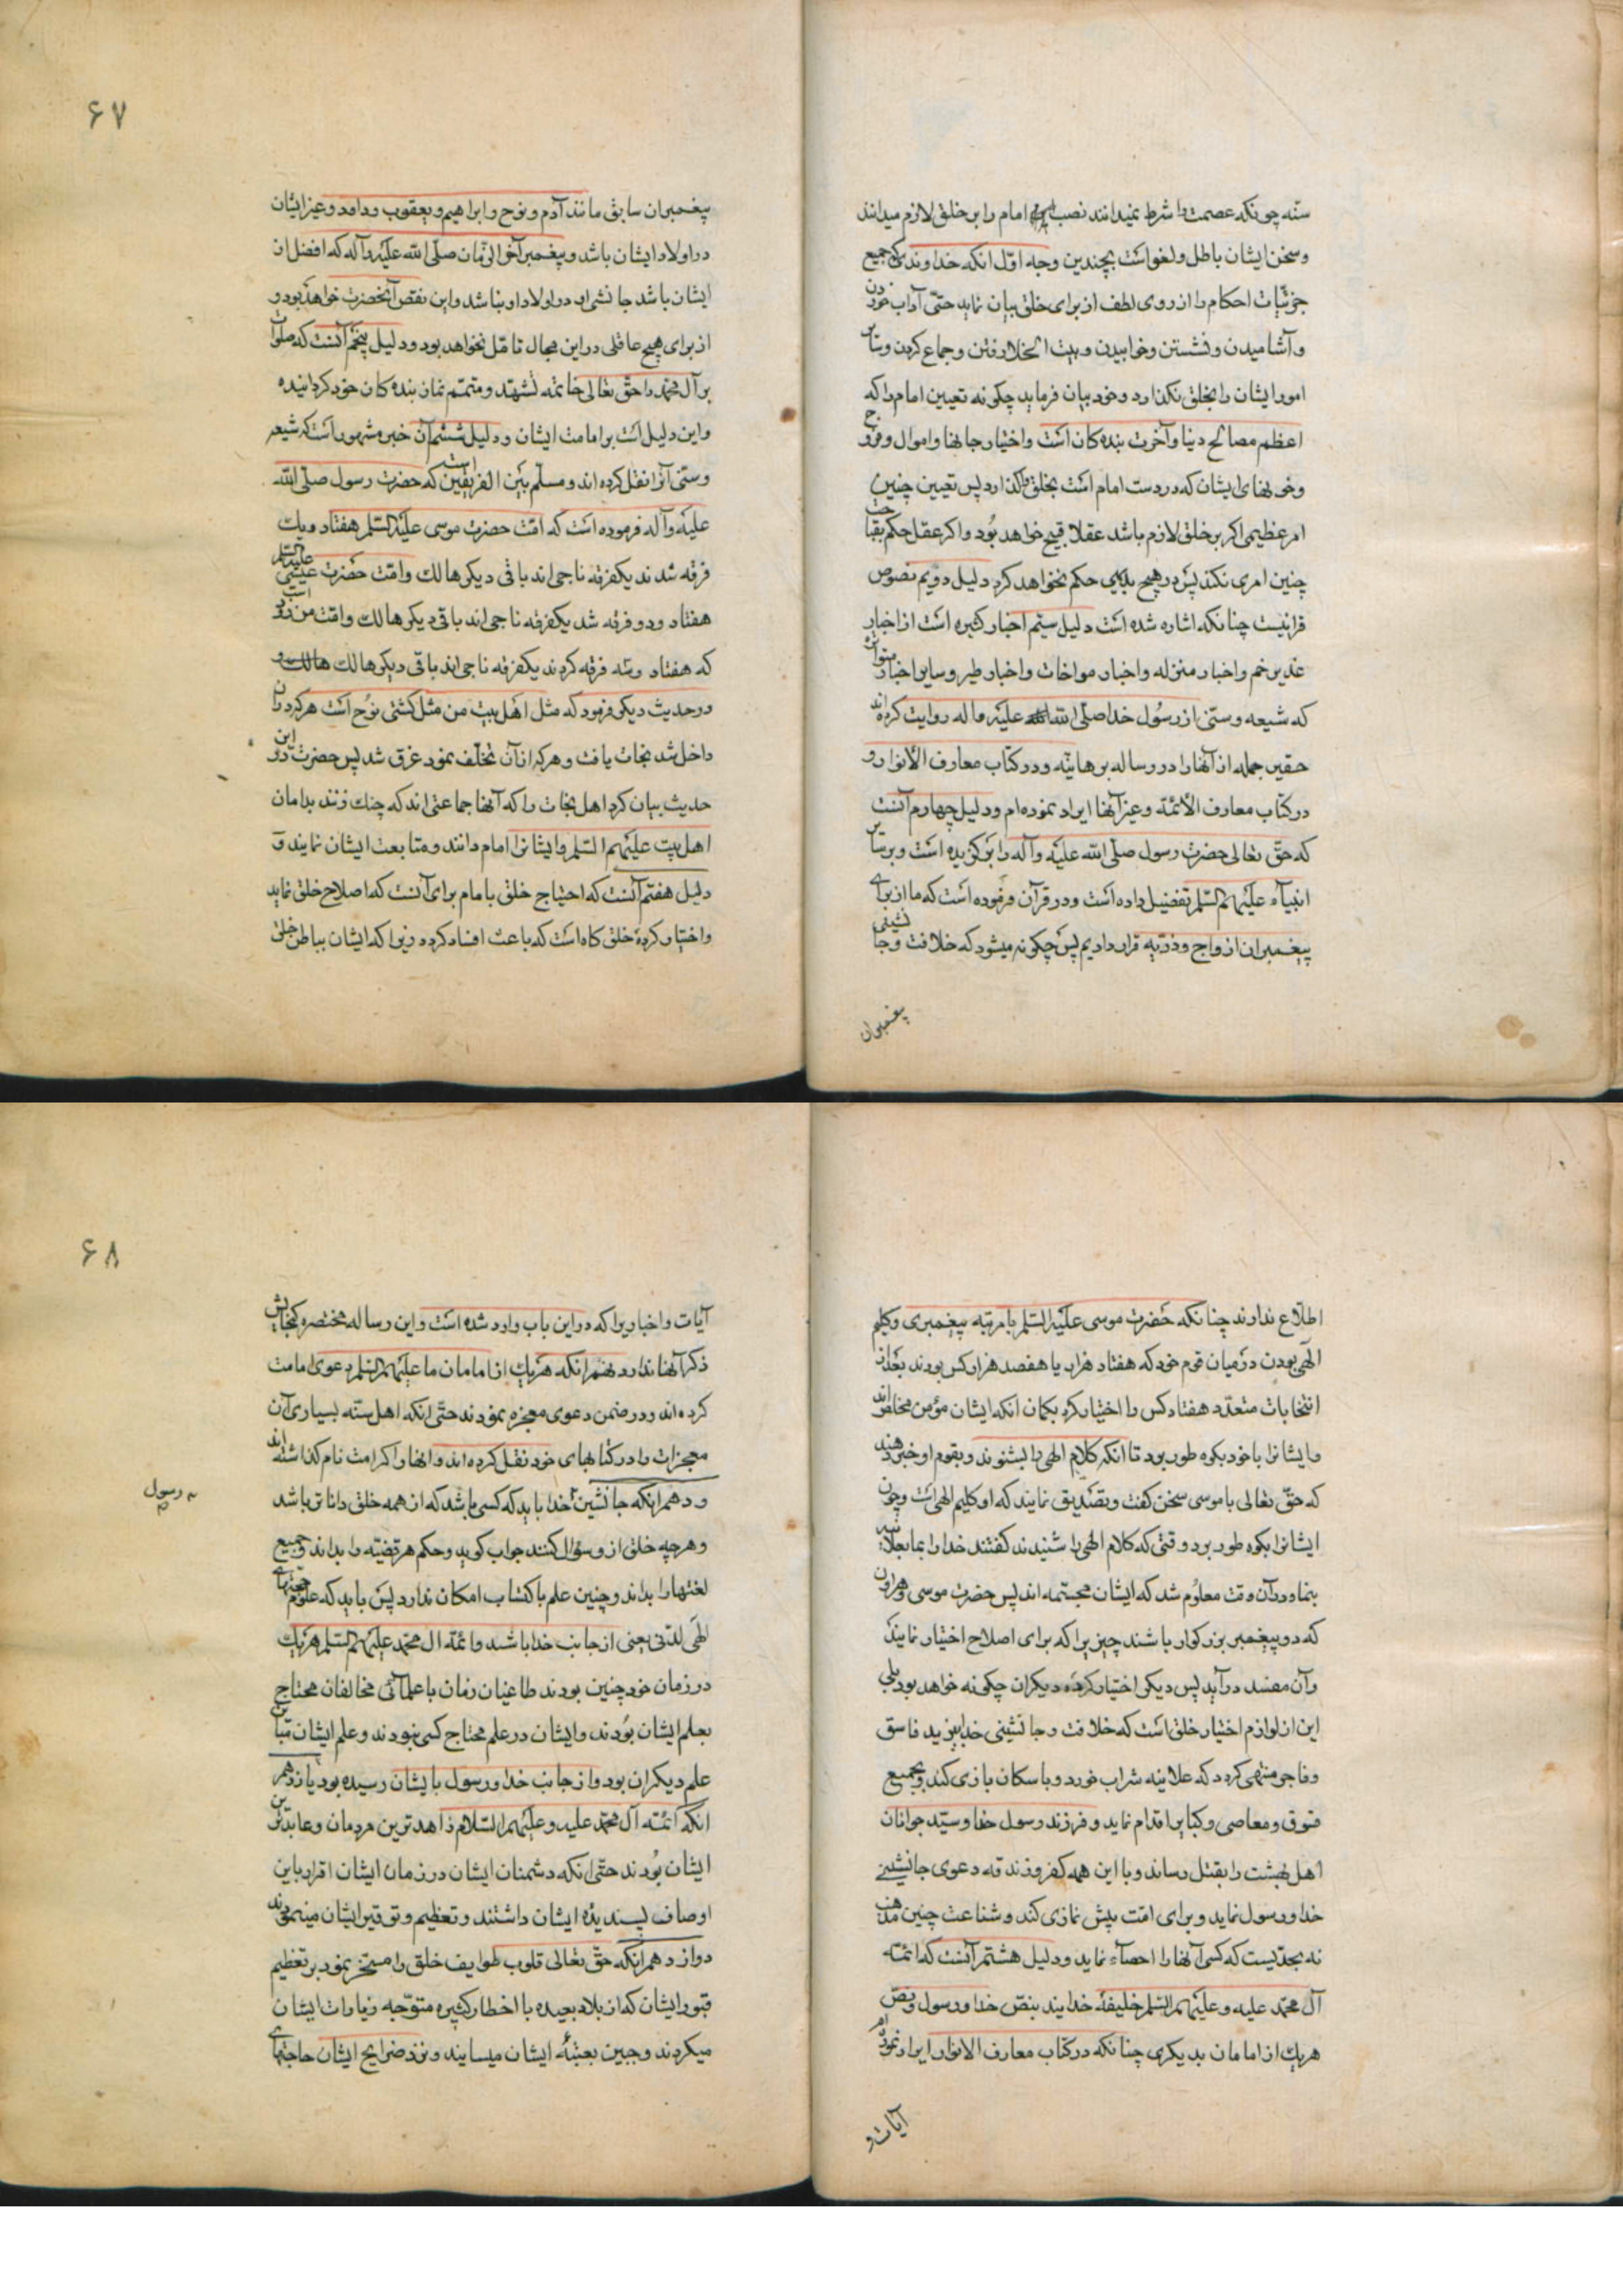 سنّه چونکه عصمت را شرط نمیدانند نصب امام را بر خلق لازم میدانند
و سخن ایشان باطل و لغو است بچندین وجه اوّل انکه خداوندیکه جمیع
جزئیّات احکام را از روی لطف از برای خلق بیان نماید حتّی آداب خوردن
و آشامیدن و نشستن و خوابیدن و بیت الخلا رفتن و جماع کردن و سایر
امور ایشان را بخلق نکذارد و خود بیان فرماید چکونه تعیین امام را که
اعظم مصالح دنیا و آخرت بنده کان است و اختیار جانها و اموال و فروج
و خونهای ایشان که در دست امام است بخلق واکذارد پس تعیین چنین
امر عظیمی اکر بر خلق لازم باشد عقلا قبیح خواهد بُود و اکر عقل حکم بقباحت
چنین امری نکند پس در هیچ بابی حکم نخواهد کرد دلیل دویم نصوص
قرانیست چنانکه اشاره شده است دلیل سیّم اخبار کثیره است از اخبار
غدیر خم و اخبار منزله و اخبار مواخات و اخبار طیر و سایر اخبار متواتره
که شیعه و سنّی از رسُول خدا صلّی الله علیه و اله روایت کرده‌اند
حقیر جمله از آنها را در رساله برهانیّه و در کتاب معارف الأنوار و
در کتاب معارف الأئمّة و غیر آنها ایراد نموده‌ام و دلیل چهارم آنست
که حقّ تعالی حضرت رسول صلّی الله علیه و آله را بر کزیده است و بر سایر
انبیآء علیهم السّلم تفضیل داده است و در قرآن فرموده است که ما از برای
پیغمبران ازواج و ذرّیه قرار دادیم پس چکونه میشود که خلافت و جانشینی
پیغمبران
۶۷
پیغمبران سابق مانند آدم و نوح و ابراهیم و یعقوب و داود و غیر ایشان
در اولاد ایشان باشد و پیغمبر آخر الزّمان صلّی الله علیه و آله که افضل از
ایشان باشد جانشین او در اولاد او نباشد و این نقص آنحضرت خواهد بود و
از برای هیچ عاقلی در این مجال تامّل نخواهد بود و دلیل پنجم آنست که صلوات
بر آل محمّد را حقّ تعالی خاتمه تشهّد و متمّم نماز بنده کان خود کردانیده
و این دلیل است بر امامت ایشان و دلیل ششم آن خبر مشهور است که شیعه
و سنّی آنرا نقل کرده اند و مسلّم بین الفریقین است که حضرت رسول صلّی الله
علیه و آله فرموده است که امّت حضرت موسی علیه السّلم هفتاد و یک
فرقه شدند یکفرقه ناجی اند باقی دیکر هالک و امّت حضرت عیسی علیه السلم
هفتاد و دو فرقه شد یکفرقه ناجی اند باقی دیکر هالک و امّت من زود است
که هفتاد و سّه فرقه کردند یکفرقه ناجی اند باقی دیکر هالک هالک و
در حدیث دیکر فرمود که مثل اهل بیت من مثل کشتی نوُح است هر که در آن
داخل شد نجات یافت و هر که از آن تخلّف نمود غرق شد پس حضرت در این
حدیث بیان کرد اهل نجات را که آنها جماعتی اند که چنک زنند بدامان
اهل بیت علیهم السّلم و ایشانرا امام دانند و متابعت ایشان نمایند و
دلیل هفتم آنست که احتیاج خلق بامام برای آنست که اصلاح خلق نماید
و اختیار کردهٔ خلق کاه است که باعث افساد کردد زیرا که ایشان بباطن خلق
اطّلاع ندارند چنانکه حضرت موسی علیه السّلم با مرتبه پیغمبری و کلیم
الهی بودن در میان قوم خود که هفتاد هزار یا هفصد هزار کس بودند بعد از
انتخابات متعدّد هفتاد کس را اختیار کرد بکمان انکه ایشان مؤمن مخلص اند
و ایشانرا با خود بکوه طور برد تا انکه کلام الهی را بشنوند و بقوم او خبر دهند
که حقّ تعالی با موسی سخن کفت و تصدیق نمایند که او کلیم الهی است و چون
ایشانرا بکوه طور برد وقتی که کلام الهی را شنیدند کفتند خدا را بما بعلانیه
بنما و در آن وقت معلوُم شد که ایشان مجسّمه اند پس حضرت موسی و هرون
که دو پیغمبر بزرکوار باشند چیزیرا که برای اصلاح اختیار نمایند
و آن مفسد در آید پس دیکر اختیار کردهٔ دیکران چکونه خواهد بود بلی
این از لوازم اختیار خلق است که خلافت و جانشینی خدا بیزید فاسق
و فاجر منتهی کردد که علانیه شراب خورد و با سکان بازی کند و بجمیع
فسوق و معاصی و کبایر اقدام نماید و فرزند رسول خدا و سیّد جوانان
اهل بهشت را بقتل رساند و با این همه کفر و زندقه دعوی جانشینی
خدا و رسول نماید و برای امّت پیش نمازی کند و شناعت چنین مذهب
نه بحدّیست که کسی آنها را احصآء نماید و دلیل هشتم آنست که ائمّه
آل محمّد علیه و علیهم السّلم خلیفهٔ خدایند بنصّ خدا و رسول و بنصّ
هر یک از امامان بدیکری چنانکه در کتاب معارف الانوار ایراد نموده‌ام
آیات و
۶۸
آیات و اخباریرا که در این باب وارد شده است و این رساله مختصره کنجایش
ذکر آنها ندارد نهم انکه هر یک از امامان ما علیهم السّلم دعوی امامت
کرده اند و در ضمن دعوی معجزه نمودند حتّی انکه اهل سنّه بسیاری آن
معجزات را در کتابهای خود نقل کرده اند و انها را کرامت نام کذاشته اند
و دهم انکه جانشین خدا باید که کسی باشد که از همه خلق داناتر باشد
و رسول
و هر چه خلق از و سؤال کنند جواب کوید و حکم هر قضیّه را بداند و جمیع
لغتها را بداند و چنین علم باکتساب امکان ندارد پس باید که علوم
الهی لدنّی یعنی از جانب خدا باشد و ائمّه ال محمّد علیهم السّلم هر یک
در زمان خود چنین بودند طاغیان زمان با علمآئی مخالفان محتاج
بعلم ایشان بُودند و ایشان در علم محتاج کسی نبودند و علم ایشان
علم دیکران بود و از جانب خدا و رسول بایشان رسیده بود یازدهم
انکه ائمّه آل محمّد علیه و علیهم السّلام زاهد ترین مردمان و عابدترین
ایشان بُودند حتّی انکه دشمنان ایشان در زمان ایشان اقرار باین
اوصاف پسندیدهٔ ایشان داشتند و تعظیم و توقیر ایشان مینمودند
دوازدهم انکه حقّ تعالی قلوب طوایف خلق را مسخّر نمود بر تعظیم
قبور ایشان که از بلاد بعیده با اخطار کثیره متوّجه زیارات ایشان
میکردند و جبین بعتبهٔ ایشان میسایند و نزد ضرایح ایشان حاجتهای